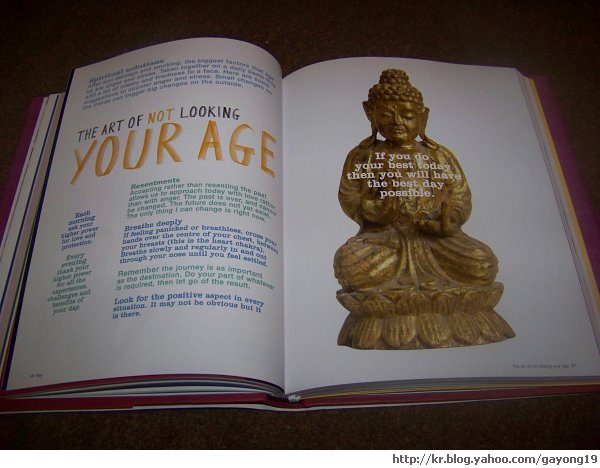 Spiritual solutions
After sun damage and smoking, the biggest factors that age
us are anger and stress. Taken together on a daily basis they
add a lot of misery and tiredness to a face. Here are some
suggestions to counter anger and stress. Small changes on
the inside can trigger big changes on the outside.
THE ART OF NOT LOOKING
YOUR AGE
Each
morning
ask your
higher power
for love and
protection.
Every
evening
thank your
higher power
for all the
experiences,
challenges and
benefits of
your day.
Resentments
Accepting rather than resenting the past
allows us to approach today with love rather
than with anger. The past is over, and cannot
be changed. The future does not yet exist.
The only thing I can change is right now.
Breathe deeply
If feeling panicked or breathless, cross your
hands over the centre of your chest, between
your breasts (this is the heart chakra).
Breathe slowly and regularly in and out
through your nose until you feel settled.
Remember the journey is as important
as the destination. Do your part of whatever
is required, then let go of the result.
Look for the positive aspect in every
situation. It may not be obvious but it
is there.
If you do
your best today
then you will have
the best day
possible.
The art of not looking your age
http://kr.blog.yahoo.com/gayong19